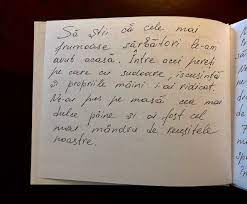 Să știi că cele mai
frumoase sărbători le-am
avut acasă. Între acei pereți
pe care cu sudoare, iscusință
și propriile mâini i-ai ridicat.
Ne-ai pus pe masă cea mai
dulce pâine și ai fost cel
mai mândru de reușitele
noastre.